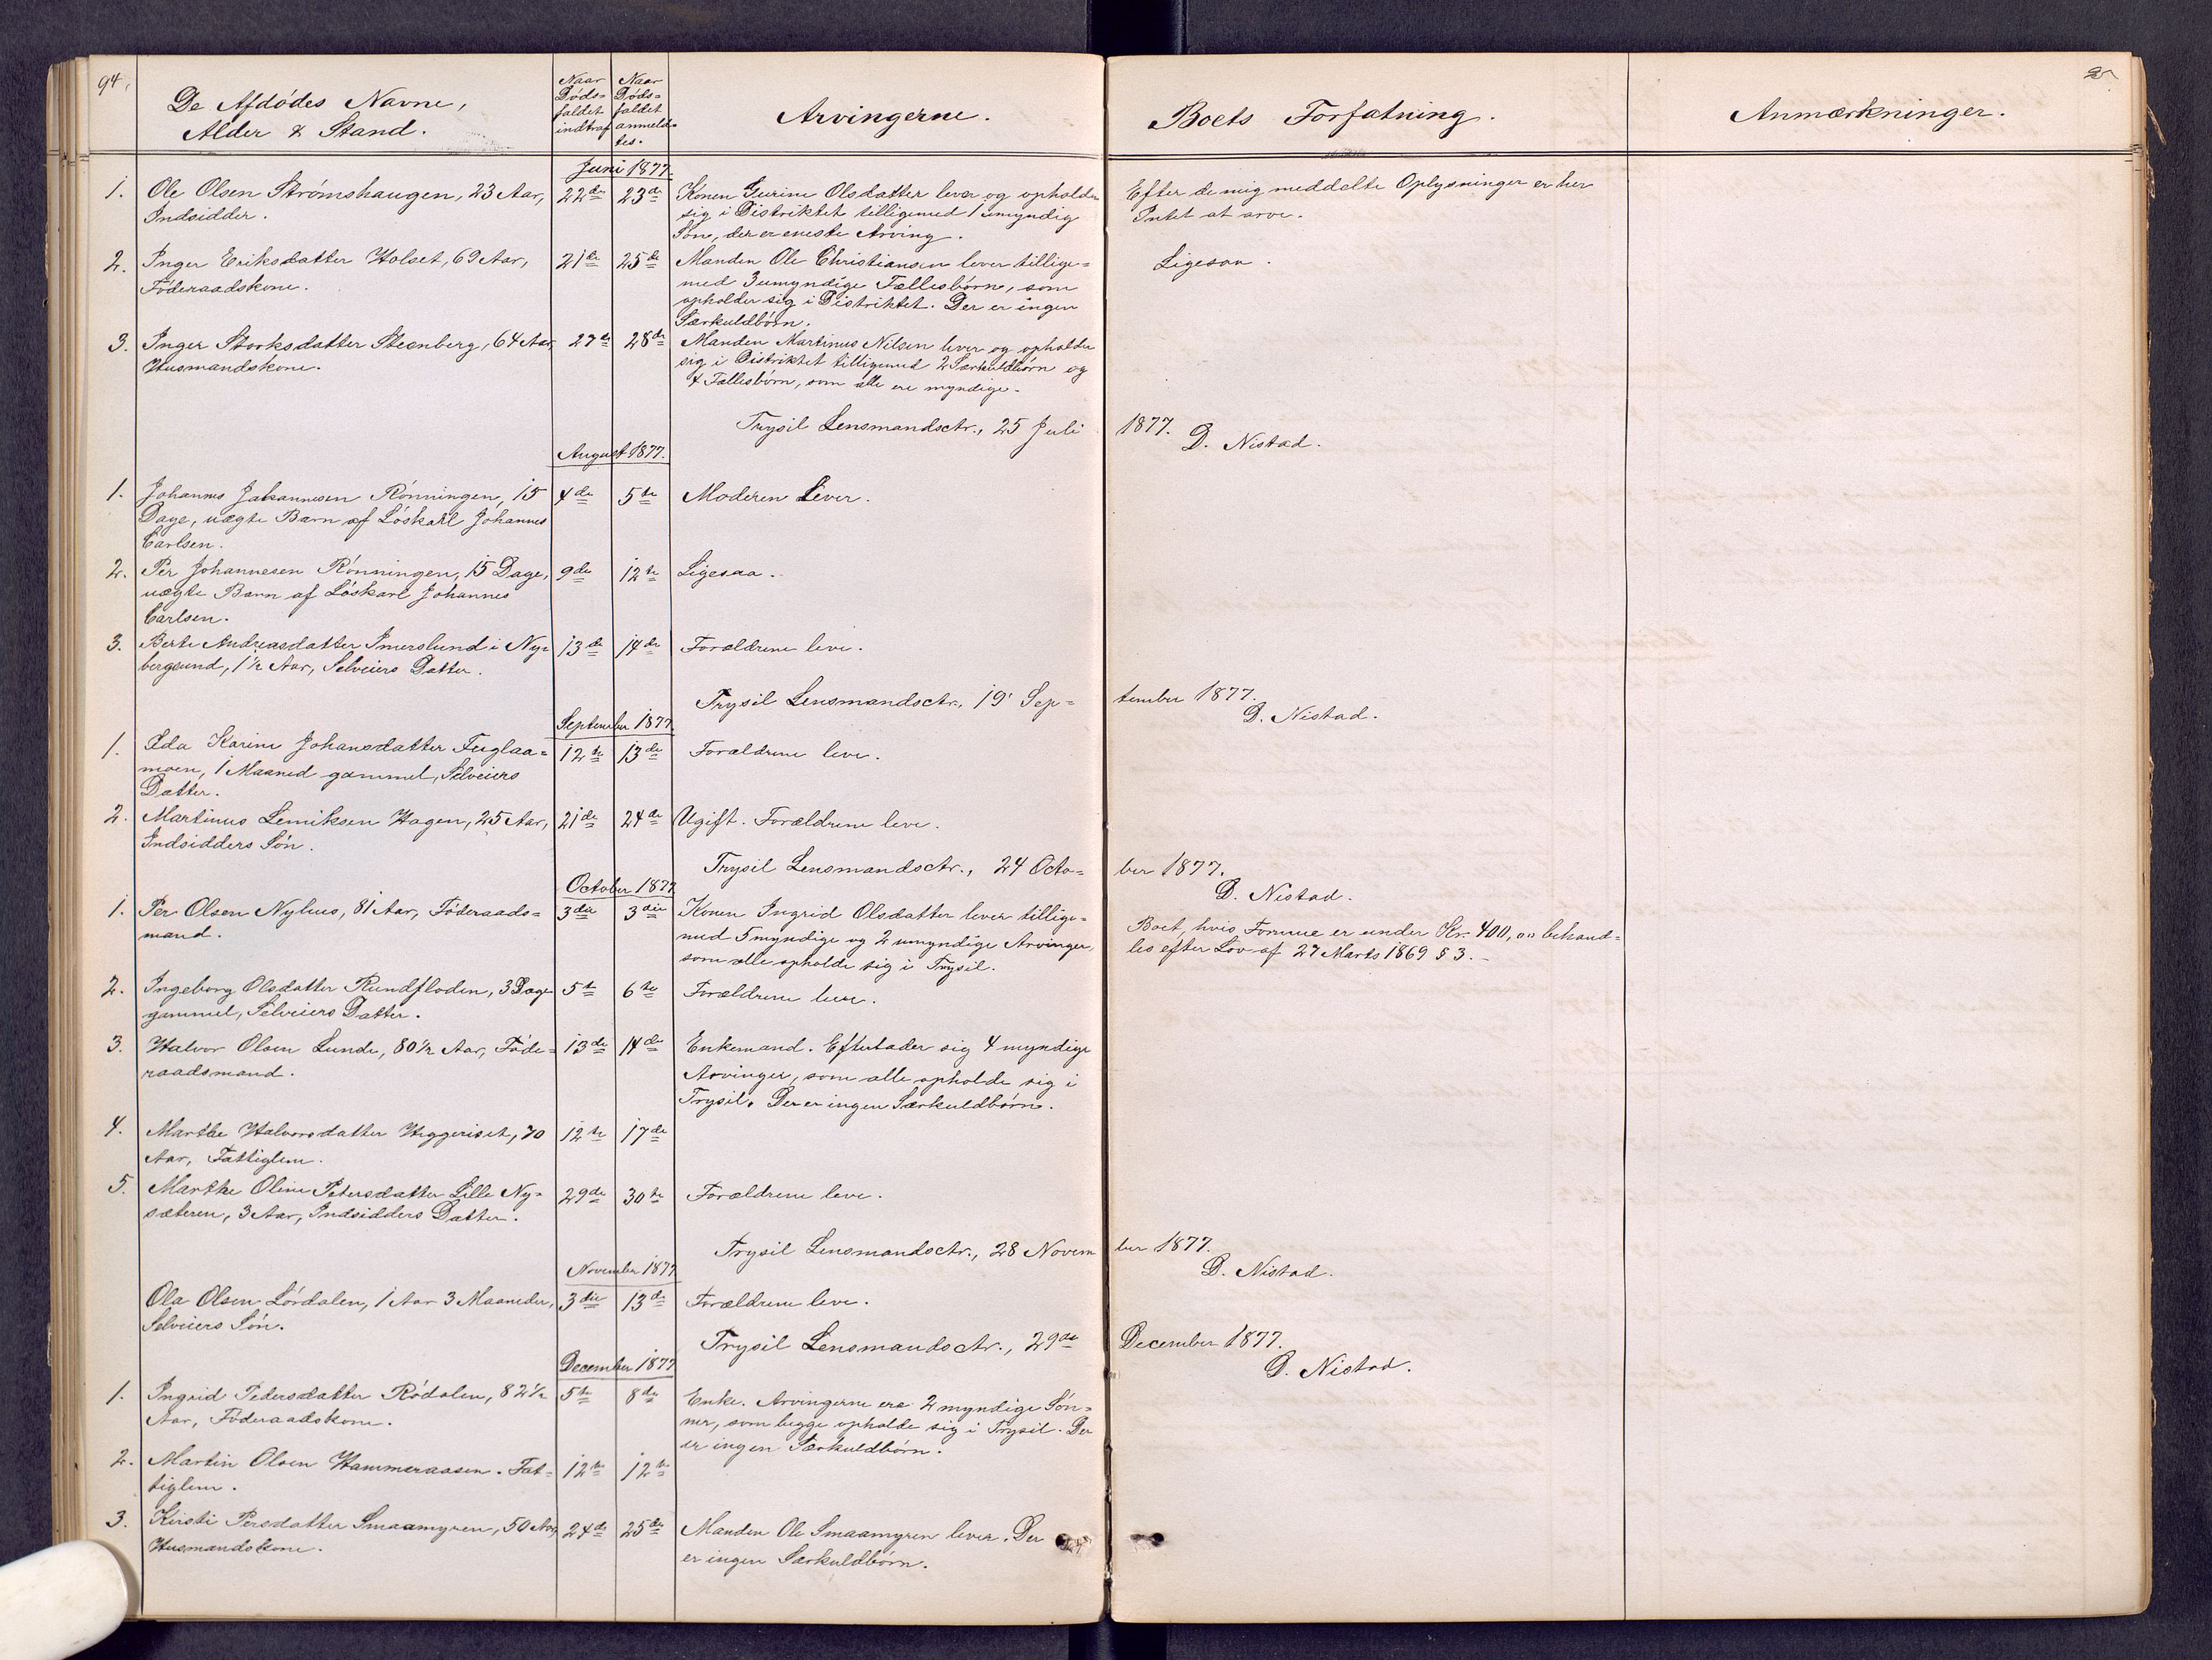 94.
De Afdödes Navne,
Alder & Stand.
Naar
Döds=
faldet
indtraf
Naar
Döds=
faldet
anmeld=
tes.
Arvingerne.
Boets Forfatning.
Anmærkninger.
Juni 1877.
1. Ole Olsen Strömshaugen, 23 Aar,
Indsidder.
22de 23de
Konen Gurine Olsdatter lever og opholder
sig i Distriktet tilligemed 1 umyndig
Sön, der er eneste Arving.
Efter de mig meddelte Oplysninger er her
Intet at arve.
2. Inger Eriksdatter Holset, 69 Aar,
Föderaadskone.
21de 25de
Manden Ole Christiansen lever tillige=
med 3 umyndige Fællesbörn, som
opholder sig i Distriktet. Der er ingen
Særkuldbörn.
Ligesaa.
3. Inger Storksdatter Steenberg, 64 Aar,
Husmandskone.
27de 28de
Manden Martinus Nilsen lever og opholder
sig i Distriktet tilligemed 2 Særkuldbörn og
4 Fællesbörn, som alle ere myndige.
Trysil Lensmandsctr., 25 Juli 1877.
D. Nistad.
August 1877.
1. Johannes Johannesen Rönningen, 15
Dage, uægte Barn af Löskarl Johannes
Carlsen.
4de 5te
Moderen Lever.
2. Per Johannesen Rönningen, 15 Dage,
uægte Barn af Löskarl Johannes
Carlsen.
9de 12te
Ligesaa.
3. Berte Andreasdatter Imerslund i Ny=
bergsund, 1½ Aar, Selveiers Datter.
13de 14de
Forældrene leve.
Trysil Lensmandsctr., 19 Sep=
tember 1877.
D. Nistad.
September 1877.
1. Oda Karine Johansdatter Fuglaa=
moen, 1 Maaned gammel, Selveiers
Datter.
12te 13de
Forældrene leve.
2. Martinus Lemiksen Hagen, 25 Aar,
Indsidders Sön.
21de 24de
Ugift. Forældrene leve.
Trysil Lensmandsctr., 24 Octo=
ber 1877.
D. Nistad.
October 1877
1. Per Olsen Nyhus, 81 Aar, Föderaads=
mand.
3die 3die
Konen Ingrid Olsdatter lever tillige=
med 5 myndige og 2 umyndige Arvinger,
som alle opholde sig i Trysil.
Boet, hvis Formue er under Kr. 400, behand=
les efter Lov af 27 Marts 1869 § 3.
2. Ingeborg Olsdatter Rundfloden, 3 Dage
gammel, Selveiers Datter.
5te 6te
Forældrene leve.
3. Halvor Olsen Lunde, 80½ Aar, Föde=
raadsmand.
13de 14de
Enkemand. Efterlader sig 4 myndige
Arvinger, som alle opholde sig i
Trysil. Der er ingen Særkuldbörn.
4. Marthe Halvorsdatter Heggeriset, 70
Aar, Fattiglem.
12te 17de
5. Marthe Oline Petersdatter Lille Ny=
sæteren, 3 Aar, Indsidders Datter.
29de 30te
Forældrene leve.
Trysil Lensmandsctr., 28 Novem
ber 1877.
D. Nistad.
November 1877
Ola Olsen Lördalen, 1 Aar 3 Maaneder,
Selveiers Sön.
3die 13de
Forældrene leve.
Trysil Lensmandsctr., 29de December 1877.
D. Nistad.
December 1877
1. Ingrid Pedersdatter Rödalen, 82½
Aar, Föderaadskone.
5te 8de
Enke. Arvingerne ere 2 myndige Sön=
ner, som begge opholde sig i Trysil. Der
er ingen Særkuldbörn.
2. Martin Olsen Hammeraasen. Fat=
tiglem.
12te 12te
3. Kirsti Persdatter Smaamyren, 50 Aar,
Husmandskone.
24de 25de
Manden Ole Smaamyren lever. Der
er ingen Særkuldbörn.